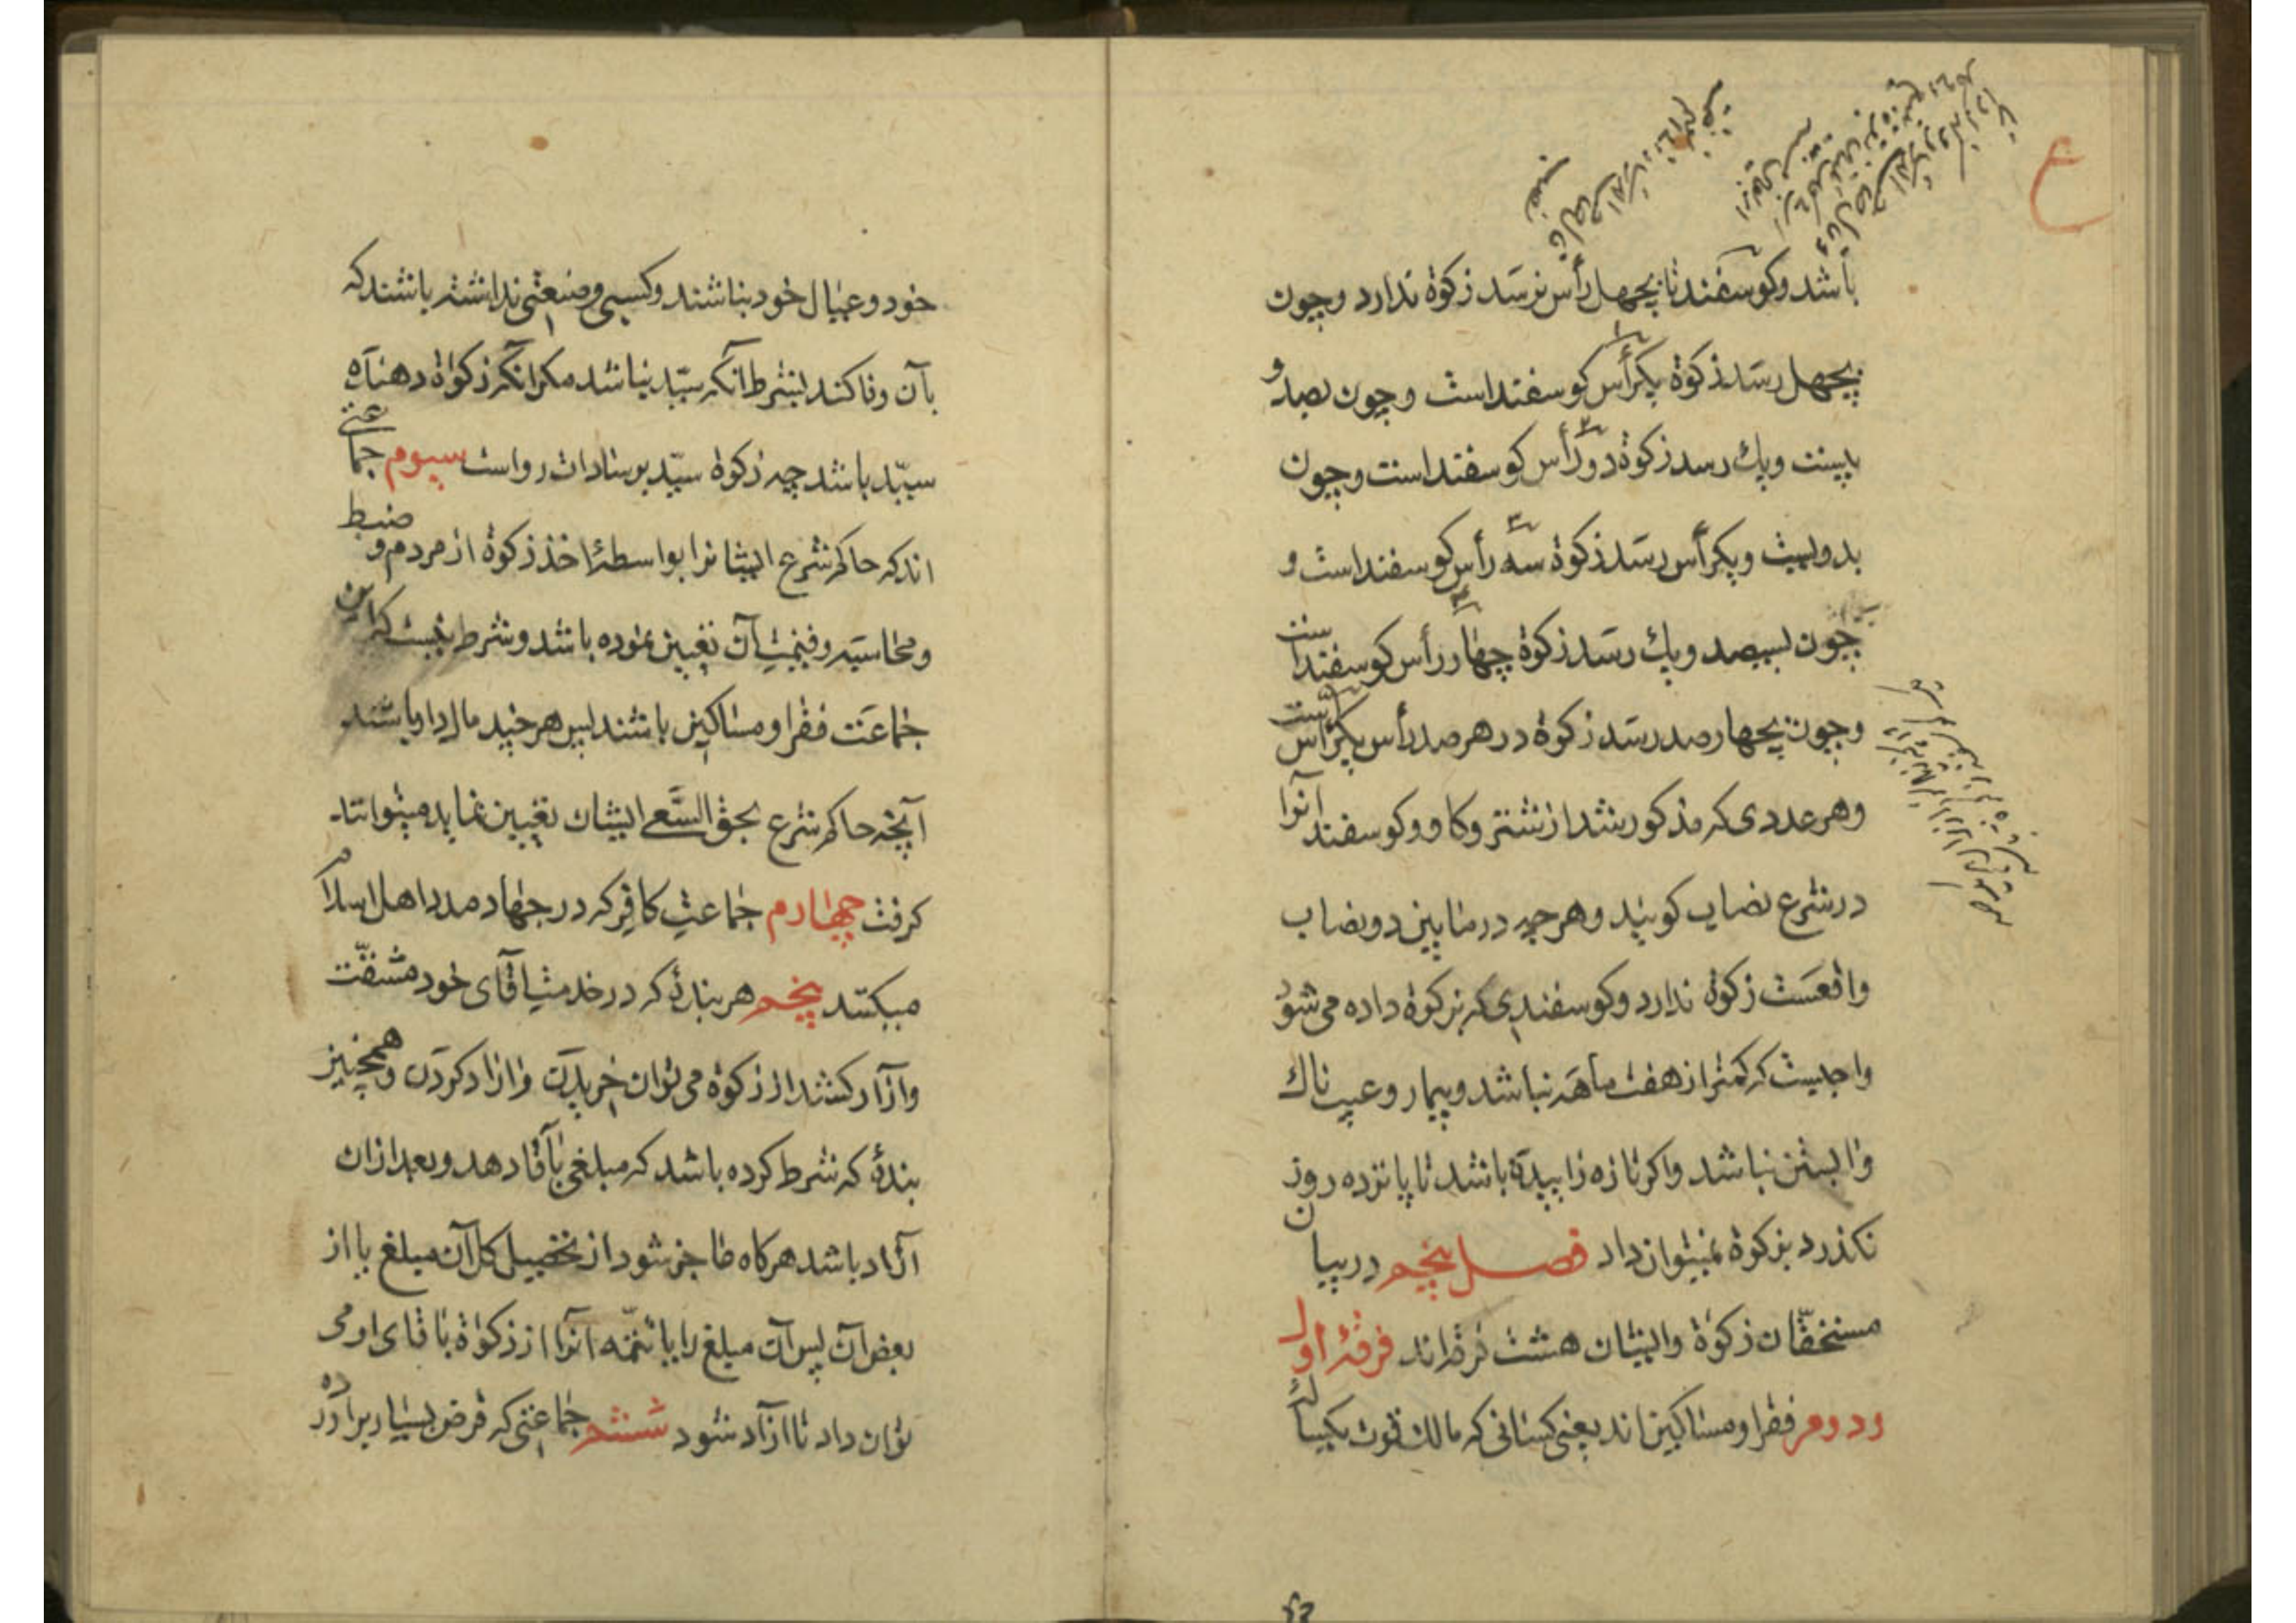 باشد وکوسفند تا بچهل رأس نرسد زکوة ندارد وچون
بچهل رسد زکوة یکرأس کوسفنداست وچون بصد و
بیست ویك رسد زکوة دورأس کوسفنداست وچون
بدویست ویکرأس رسد زکوة سه رأس کوسفنداست و
چون بسیصد ویك رسد زکوة چهار رأس کوسفنداست
وچون بچهارصد رسد زکوة در هر صد رأس یکرأس است
وهر عددی که مذکور شد از شتر وکاو وکوسفند آنرا
در شرع نصاب کویند وهر چه در مابین دو نصاب
واقعست زکوة ندارد وکوسفندی که بزکوة داده می شود
واجبست که کمتر از هفت ماهه نباشد وبیمار وعیب ناك
وابستن نباشد واکر تازه زاییده باشد تا پانزده روز
نکذرد بزکوة نمیتوان داد فصل پنجم در بیان
مستحقّان زکوة وایشان هشت فرقه اند فرقهٔ اول
ودوم فقرا ومساکین اند یعنی کسانی که مالك قوت یکساله
خود وعیال خود نباشند وکسبی وصنعتی نداشته باشند که
بآن وفا کند بشرط آنکه سیّد نباشد مکر آنکه زکوة دهنده
سیّد باشد چه زکوة سیّد بر سادات رواست سیوم جماعتی
اند که حاکم شرع ایشانرا بواسطهٔ اخذ زکوة از مردم و ضبط
ومحاسبه وقیمت آن تعیین نموده باشد وشرط نیست که این
جماعت فقرا ومساکین باشند پس هر چند مالدار باشند
آنچه حاکم شرع بحق السَّعی ایشان تعیین نماید میتوانند
کرفت چهارم جماعت کافر که در جهاد مدد اهل اسلام
میکنند پنجم هر بندهٔ که در خدمت آقای خود مشقّت
وآزار کشد از زکوة می توان خریدن وازاد کردن وهمچنین
بندهٔ که شرط کرده باشد که مبلغی بآقا دهد وبعد ازان
آزاد باشد هرکاه عاجز شود از تحصیل کل آن مبلغ یا از
بعض آن پس آن مبلغ را یا تتمّه آنرا از زکوة باقای او می
توان داد تا ازاد شود ششم جماعتی که قرض بسیار برآورده